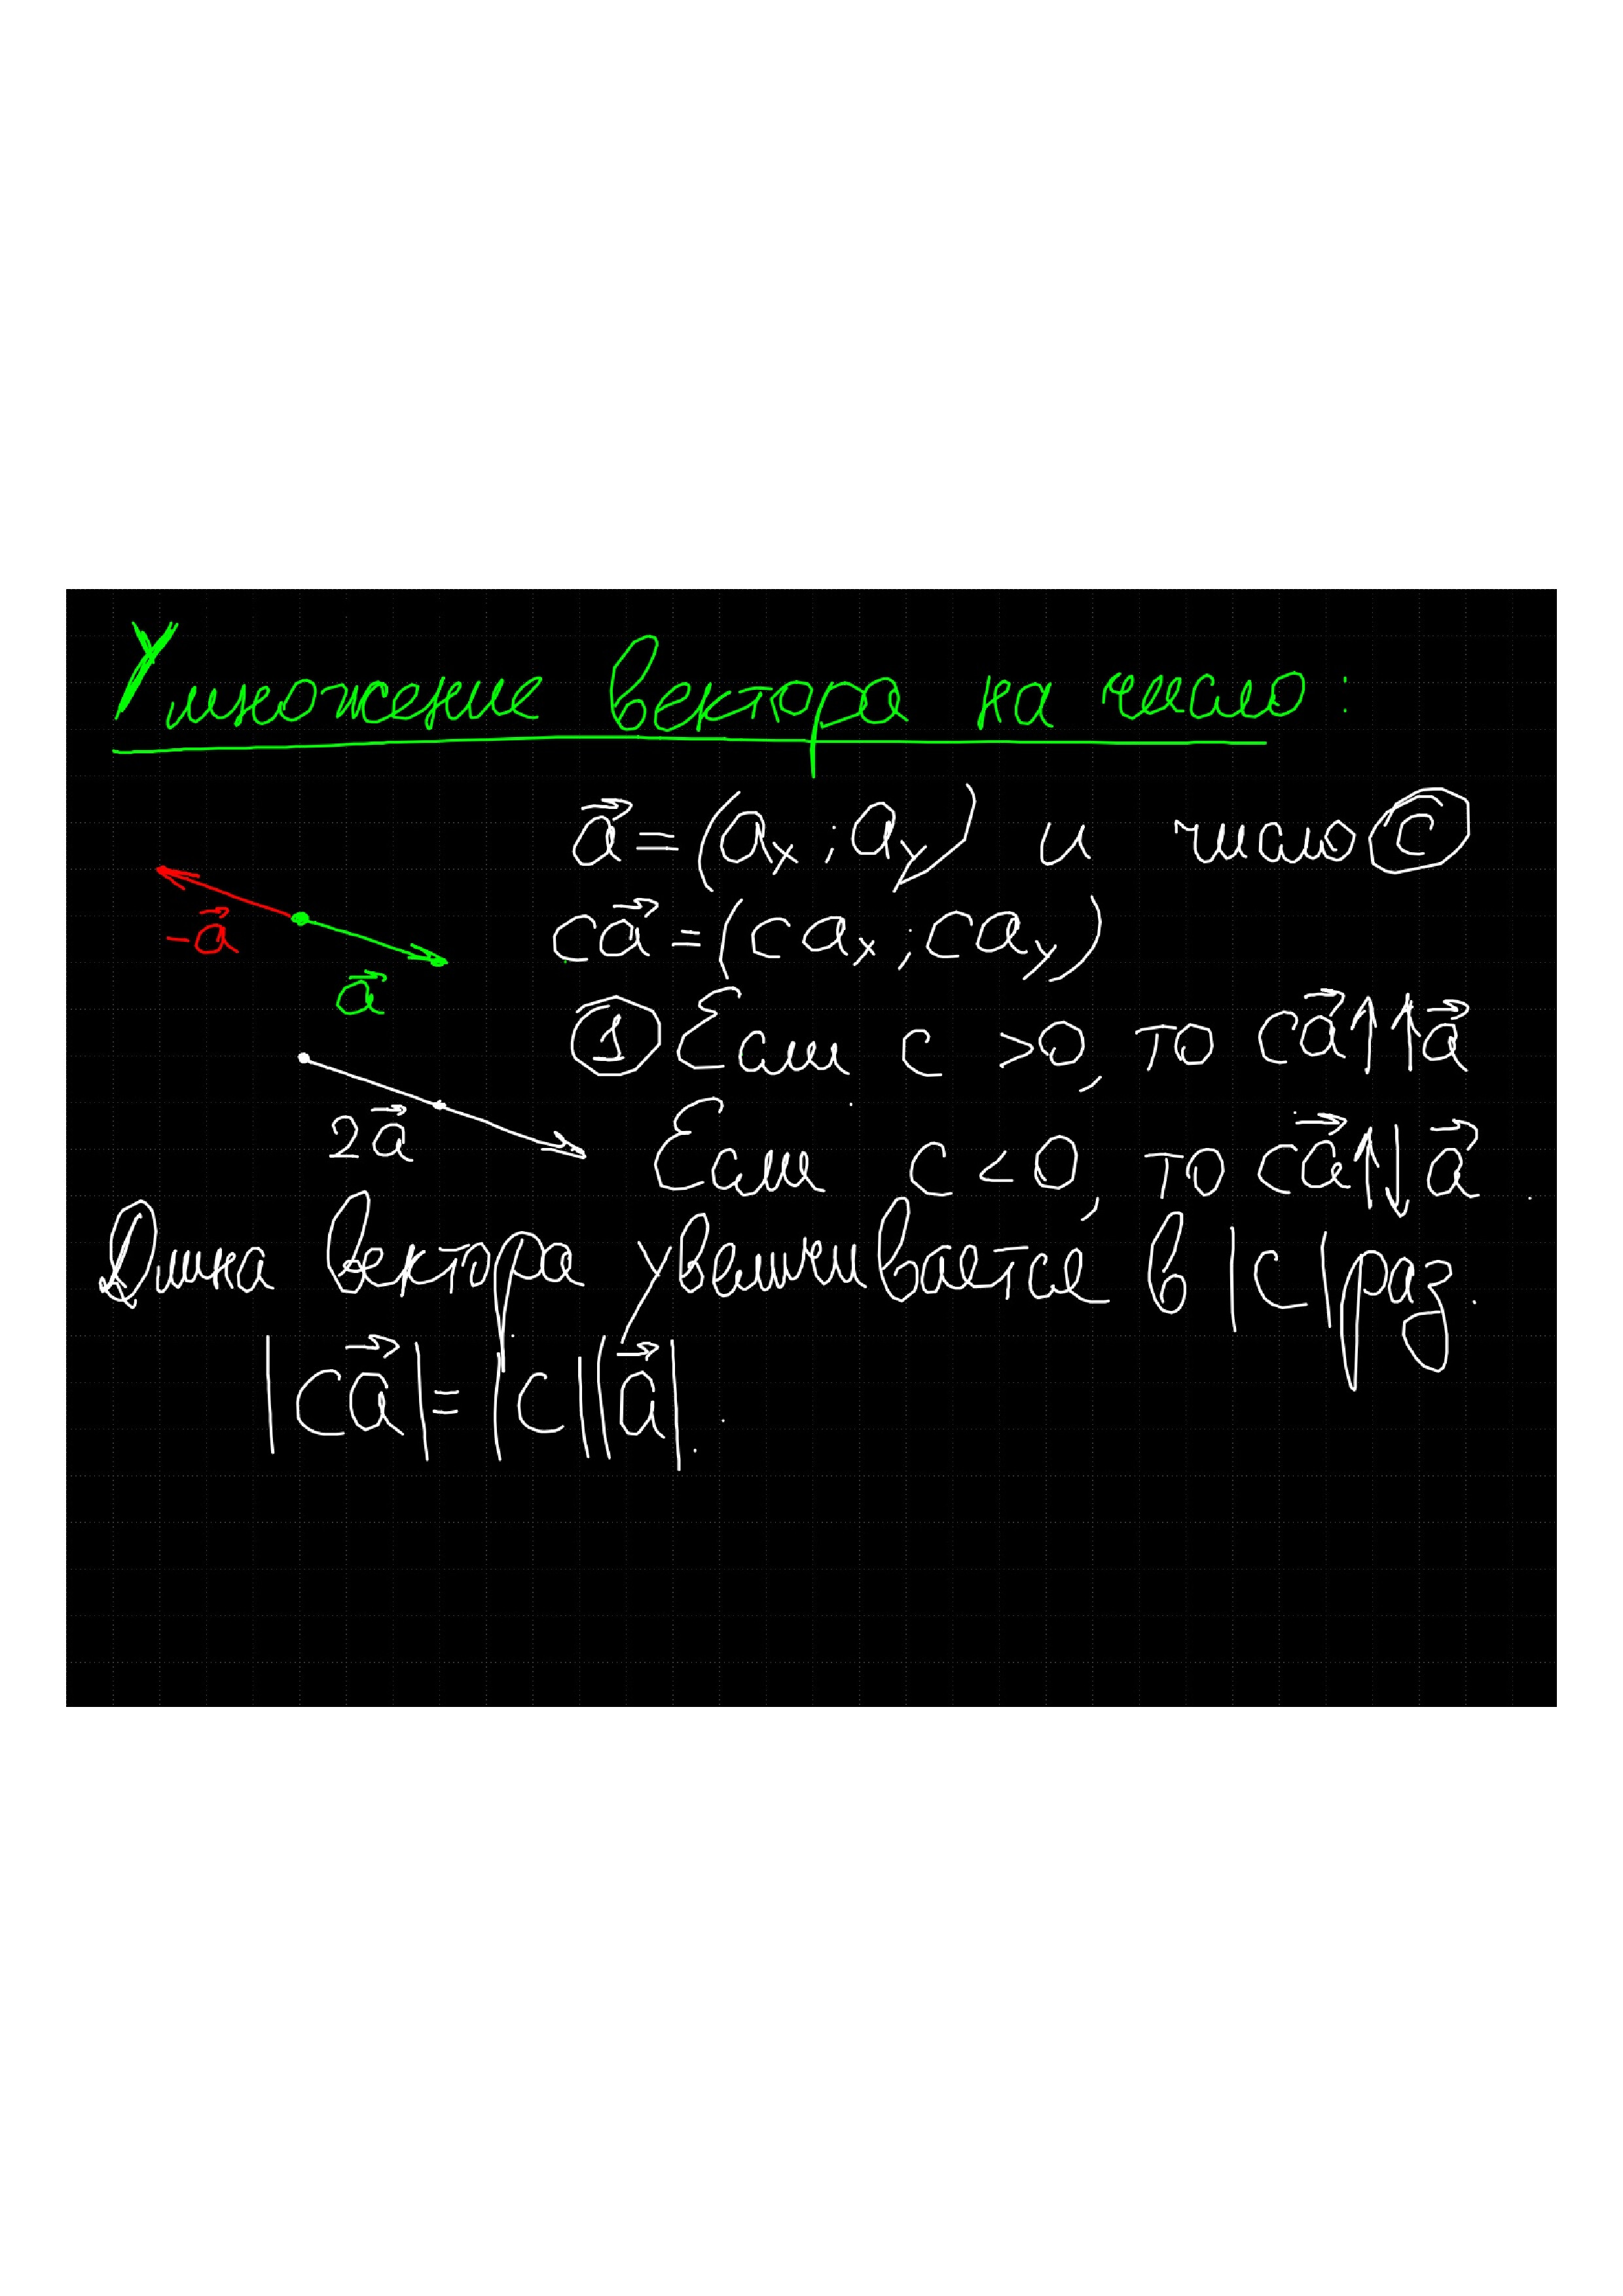 Умножение вектора на число:
a⃗ = (aₓ; aᵧ) и число c
-a⃗
ca⃗ = (caₓ; caᵧ)
a⃗
① Если c > 0, то ca⃗ ↑↑ a⃗
2a⃗
Если c < 0, то ca⃗ ↑↓ a⃗.
Длина вектора увеличивается в |c| раз.
|ca⃗| = |c||a⃗|.